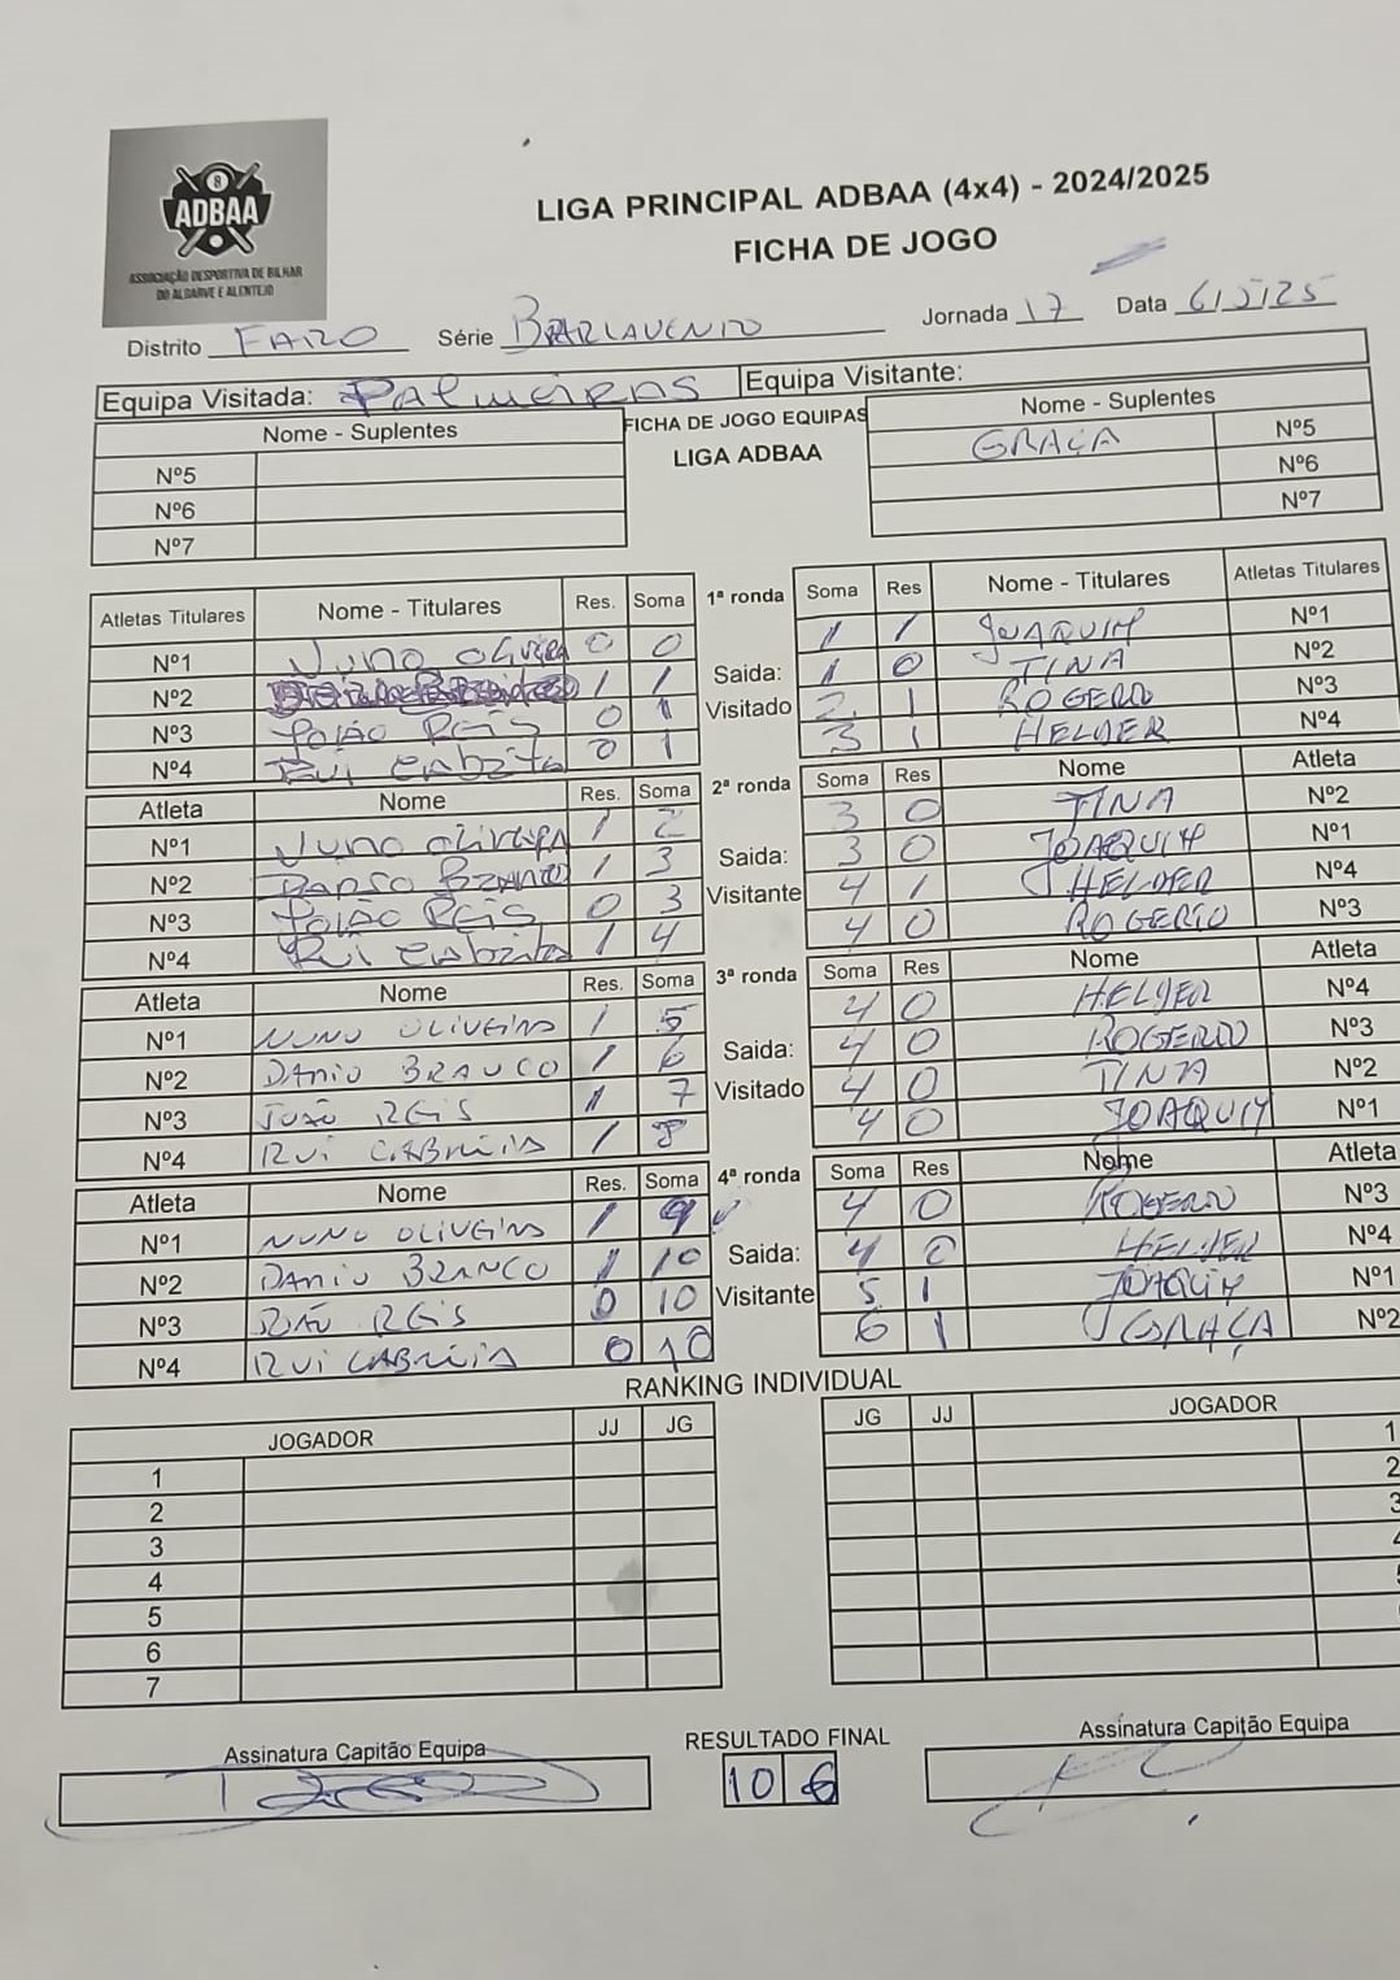 8
ADBAA
ASSOCIAÇÃO DESPORTIVA DE BILHAR
DO ALGARVE E ALENTEJO
LIGA PRINCIPAL ADBAA (4x4) - 2024/2025
FICHA DE JOGO
Distrito FARO Série BARLAVENTO Jornada 17 Data 6/5/25
Equipa Visitada: Palmeiras Equipa Visitante:
Nome - Suplentes FICHA DE JOGO EQUIPAS Nome - Suplentes
LIGA ADBAA
Nº5 GRAÇA Nº5
Nº6 Nº6
Nº7 Nº7
Atletas Titulares Nome - Titulares Res. Soma 1ª ronda Soma Res Nome - Titulares Atletas Titulares
Nº1 Nuno Oliveira 0 0 1 1 JOAQUIM Nº1
Nº2 1 1 Saida: 1 0 TINA Nº2
Nº3 João Reis 0 1 Visitado 2 1 ROGERIO Nº3
Nº4 Rui Cabrita 0 1 3 1 HELDER Nº4
Atleta Nome Res. Soma 2ª ronda Soma Res Nome Atleta
Nº1 Nuno Oliveira 1 2 3 0 TINA Nº2
Nº2 Branco 1 3 Saida: 3 0 JOAQUIM Nº1
Nº3 João Reis 0 3 Visitante 4 1 HELDER Nº4
Nº4 Rui Cabrita 1 4 4 0 ROGERIO Nº3
Atleta Nome Res. Soma 3ª ronda Soma Res Nome Atleta
Nº1 NUNO OLIVEIRA 1 5 4 0 HELDER Nº4
Nº2 DARIO BRANCO 1 6 Saida: 4 0 ROGERIO Nº3
Nº3 JOÃO REIS 1 7 Visitado 4 0 TINA Nº2
Nº4 RUI CABRITA 1 8 4 0 JOAQUIM Nº1
Atleta Nome Res. Soma 4ª ronda Soma Res Nome Atleta
Nº1 NUNO OLIVEIRA 1 9 4 0 ROGERIO Nº3
Nº2 DARIO BRANCO 1 10 Saida: 4 0 HELDER Nº4
Nº3 JOÃO REIS 0 10 Visitante 5 1 JOAQUIM Nº1
Nº4 RUI CABRITA 0 10 6 1 GRAÇA Nº2
RANKING INDIVIDUAL
JOGADOR JJ JG JG JJ JOGADOR
1 1
2 2
3 3
4
5
6
7
Assinatura Capitão Equipa RESULTADO FINAL Assinatura Capitão Equipa
10 6